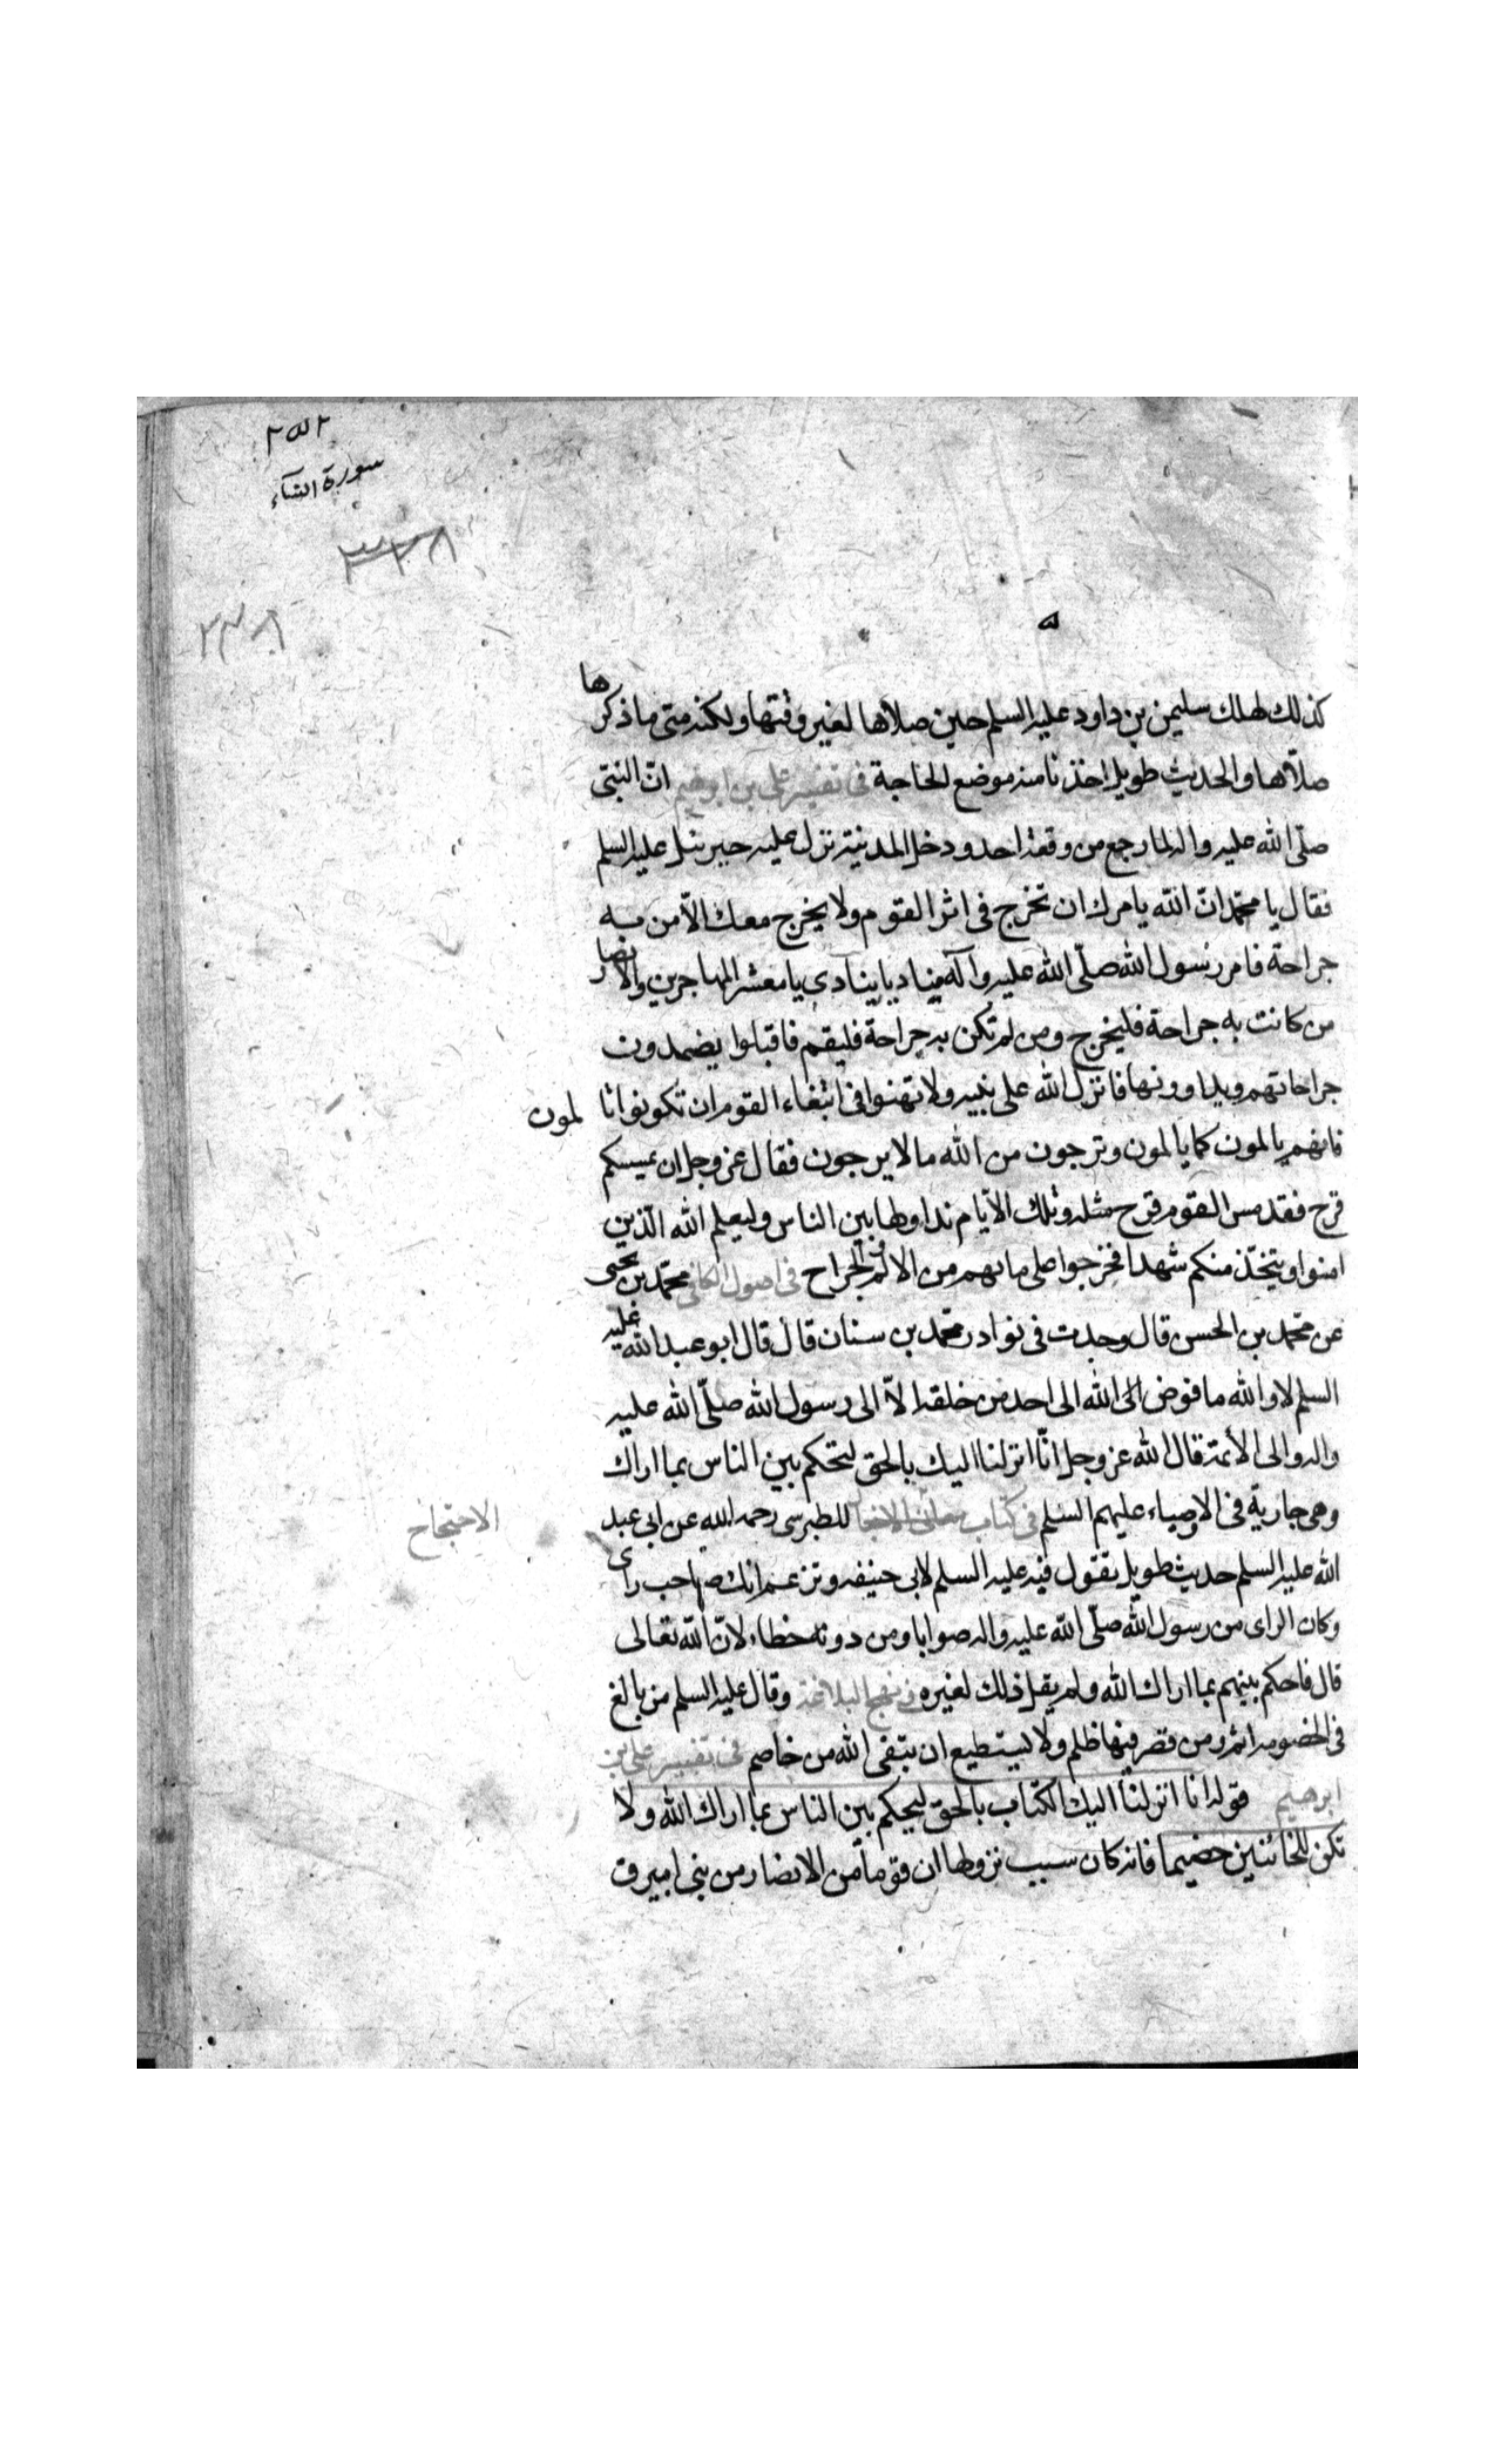 ٢٥٢
سورة النساء
٣٣٨
٣٣٨
كذلك لهلك سليمن بن داود عليه السلم حين صلاها لغير وقتها ولكنه متى ما ذكرها
صلاها والحديث طويل اخذنا منه موضع الحاجة فى تفسير على بن ابرهيم انّ النبى
صلّى الله عليه واله لما رجع من وقعة احد ودخل المدينة نزل عليه جبرئيل عليه السلم
فقال يا محمّد انّ الله يامرك ان تخرج فى اثر القوم ولا يخرج معك الّا من به
جراحة فامر رسول الله صلّى الله عليه وآله مناديا ينادى يا معشر المهاجرين والانصار
من كانت به جراحة فليخرج ومن لم تكن به جراحة فليقم فاقبلوا يضمدون
جراحاتهم ويداوونها فانزل الله على نبيه ولا تهنوا فى ابتغاء القوم ان تكونوا تالمون
فانهم يالمون كما يالمون وترجون من الله ما لا يرجون فقال عز وجل ان يمسسكم
قرح فقد مس القوم قرح مثله وتلك الايّام نداولها بين الناس وليعلم الله الّذين
امنوا ويتخّذ منكم شهدا فخرجوا على ما بهم من الالم والجراح فى اصول الكافى محمّد بن يحيى
عن محمّد بن الحسن قال وجدت فى نوادر محمّد بن سنان قال قال ابو عبد الله عليه
السلم لا والله ما فوض الله الى احد من خلقه الّا الى رسول الله صلّى الله عليه
واله والى الأئمة قال الله عز وجل انّا انزلنا اليك بالحق لتحكم بين الناس بما اراك
وهى جارية فى الاوصياء عليهم السلم فى كتاب معانى الاخبار للطبرسى رحمه الله عن ابى عبد
الاحتجاج
الله عليه السلم حديث طويل يقول فيه عليه السلم لابى حنيفه وتزعم انك صاحب راى
وكان الراى من رسول الله صلّى الله عليه واله صوابا ومن دونه خطاء لانّ الله تعالى
قال فاحكم بينهم بما اراك الله ولم يقل ذلك لغيره فى نهج البلاغة وقال عليه السلم من بالغ
فى الخصومه اثم ومن قصر فيها ظلم ولا يستطيع ان يتقى الله من خاصم فى تفسير على بن
ابرهيم قوله انا انزلنا اليك الكتاب بالحق ليحكم بين الناس بما اراك الله ولا
تكن للخائنين خصيما فانه كان سبب نزولها ان قوما من الانصار من بنى ابيرق